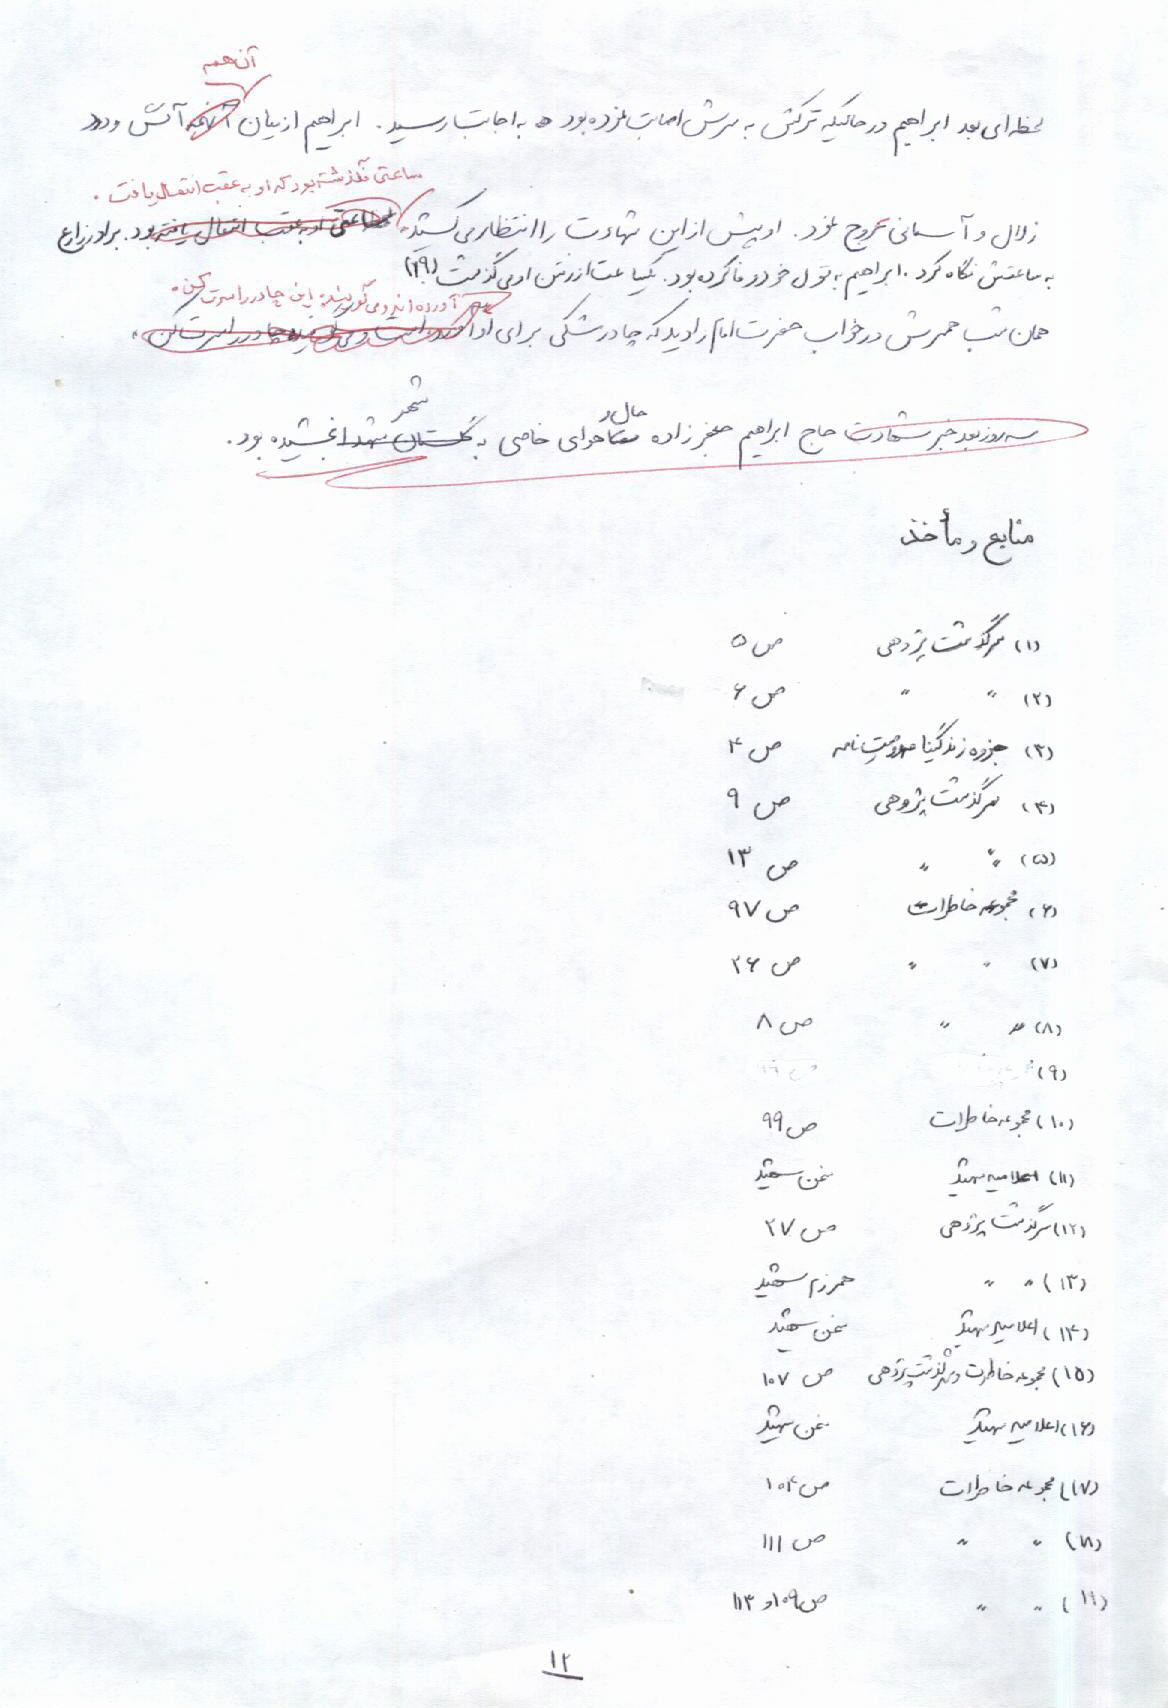 آن همه
لحظه‌ای بعد ابراهیم در حالیکه ترکش به سرش اصابت نموده بود به اجابت رسید. ابراهیم از میان آنهمه آتش و دود
ساعتی نگذشته بود که او به عقب انتقال یافت.
زلال و آسمانی عروج نمود. او پیش از این شهادت را انتظار می‌کشید. او به عقب انتقال یافته بود. برادر زارع
به ساعتش نگاه کرد. ابراهیم به قول خود وفا کرده بود. یکساعت از رفتن او می‌گذشت (۱۹)
آورده‌اند و می‌گویند: این چادر را سرت کن.
همان شب همسرش در خواب حضرت امام را دید که چادر مشکی برای او آورده است و می‌گوید چادر را سرت کن.
شهر
حال و
سه روز بعد خبر شهادت حاج ابراهیم جعفرزاده هوای خاصی به گلستان شهدا بخشیده بود.
منابع و مأخذ
(۱) سرگذشت پژوهی ص ۵
(۲) " " ص ۶
(۳) جزوه زندگینامه و وصیت نامه ص ۴
(۴) سرگذشت پژوهی ص ۹
(۵) " " ص ۱۳
(۶) مجموعه خاطرات ص ۹۷
(۷) " " ص ۲۶
(۸) " " ص ۸
(۹)
(۱۰) مجموعه خاطرات ص ۹۹
(۱۱) اعلامیه شهید سخن شهید
(۱۲) سرگذشت پژوهی ص ۲۷
(۱۳) " " همرزم شهید
(۱۴) اعلامیه شهید سخن شهید
(۱۵) مجموعه خاطرات و سرگذشت پژوهی ص ۱۰۷
(۱۶) اعلامیه شهید سخن شهید
(۱۷) مجموعه خاطرات ص ۱۰۴
(۱۸) " " ص ۱۱۱
(۱۹) " " ص ۱۰۹ و ۱۱۳
۱۲